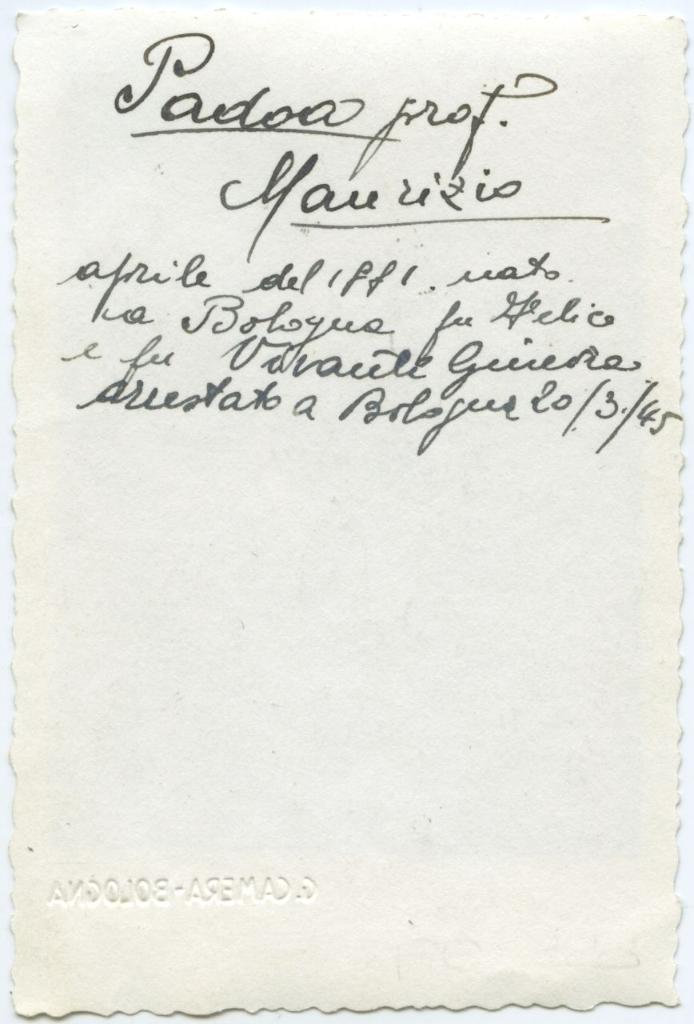 Padoa prof.
Maurizio
aprile del 1881. nato
a Bologna fu Felice
e fu Vivanti Ginevra
arrestato a Bologna 20/3./45
G. CAMERA-BOLOGNA